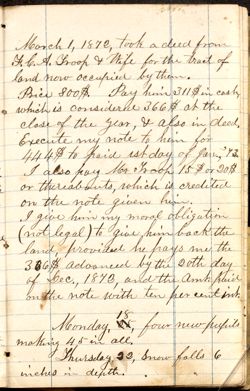 March 1, 1872, took a deed from
F. C. A. Troop & Wife for the tract of
land now occupied by them.
Price 800$ Pay him 311$ in cash,
which is considerile 366$ at the
close of the year, & also in deed.
Execute my note to him for
444$ to paid 1st day of Jan., '73.
I also pay Mr. Troop 15$ or 20$
or thereabouts, which is credited
on the note given him.
I give him my moral obligation
(not legal) to give him back the
land, provided he pays me the
366$ advanced by the 20th day
of Dec., 1872, and the Amt. paid
on the note with ten per cent int.
Monday, 18, four new pupils
making 45 in all.
Thursday 22, Snow falls 6
inches in depth.